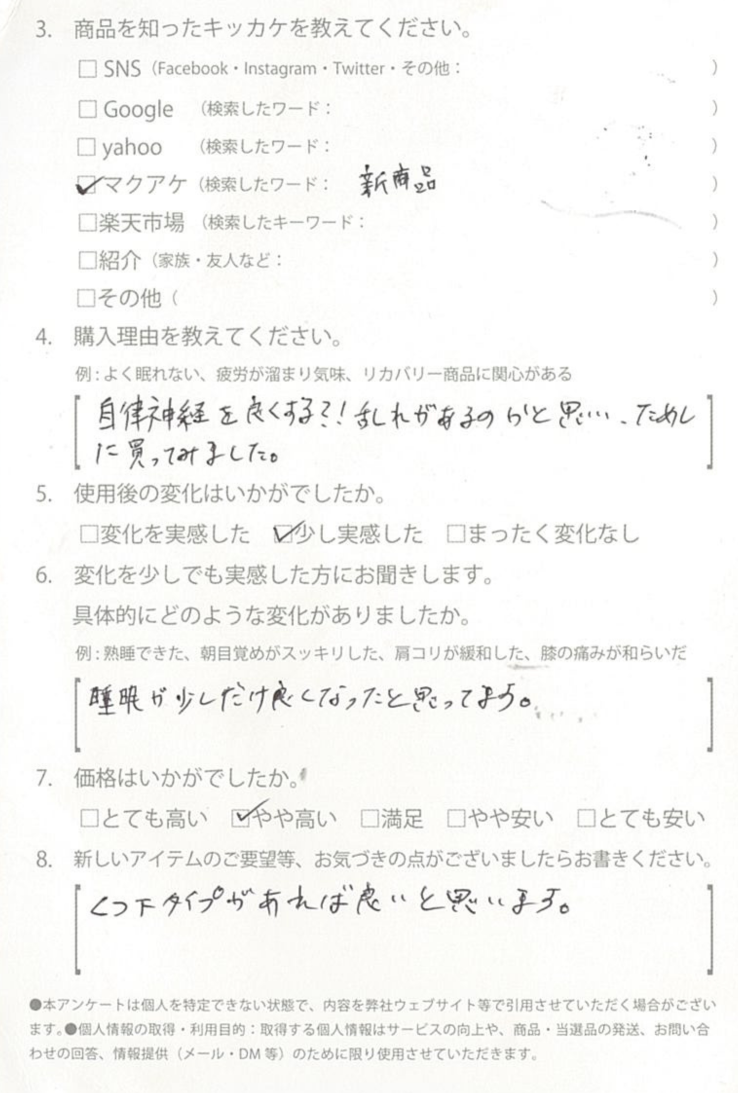 3. 商品を知ったキッカケを教えてください。
□ SNS（Facebook・Instagram・Twitter・その他： ）
□ Google （検索したワード： ）
□ yahoo （検索したワード： ）
☑マクアケ（検索したワード： 新商品 ）
□楽天市場 （検索したキーワード： ）
□紹介（家族・友人など： ）
□その他（ ）
4. 購入理由を教えてください。
例：よく眠れない、疲労が溜まり気味、リカバリー商品に関心がある
自律神経を良くする?! 乱れがあるのかと思い、ためし
に買ってみました。
5. 使用後の変化はいかがでしたか。
□変化を実感した ☑少し実感した □まったく変化なし
6. 変化を少しでも実感した方にお聞きします。
具体的にどのような変化がありましたか。
例：熟睡できた、朝目覚めがスッキリした、肩コリが緩和した、膝の痛みが和らいだ
睡眠が少しだけ良くなったと思ってます。
7. 価格はいかがでしたか。
□とても高い ☑やや高い □満足 □やや安い □とても安い
8. 新しいアイテムのご要望等、お気づきの点がございましたらお書きください。
くつ下タイプがあれば良いと思います。
●本アンケートは個人を特定できない状態で、内容を弊社ウェブサイト等で引用させていただく場合がござい
ます。●個人情報の取得・利用目的：取得する個人情報はサービスの向上や、商品・当選品の発送、お問い合
わせの回答、情報提供（メール・DM 等）のために限り使用させていただきます。